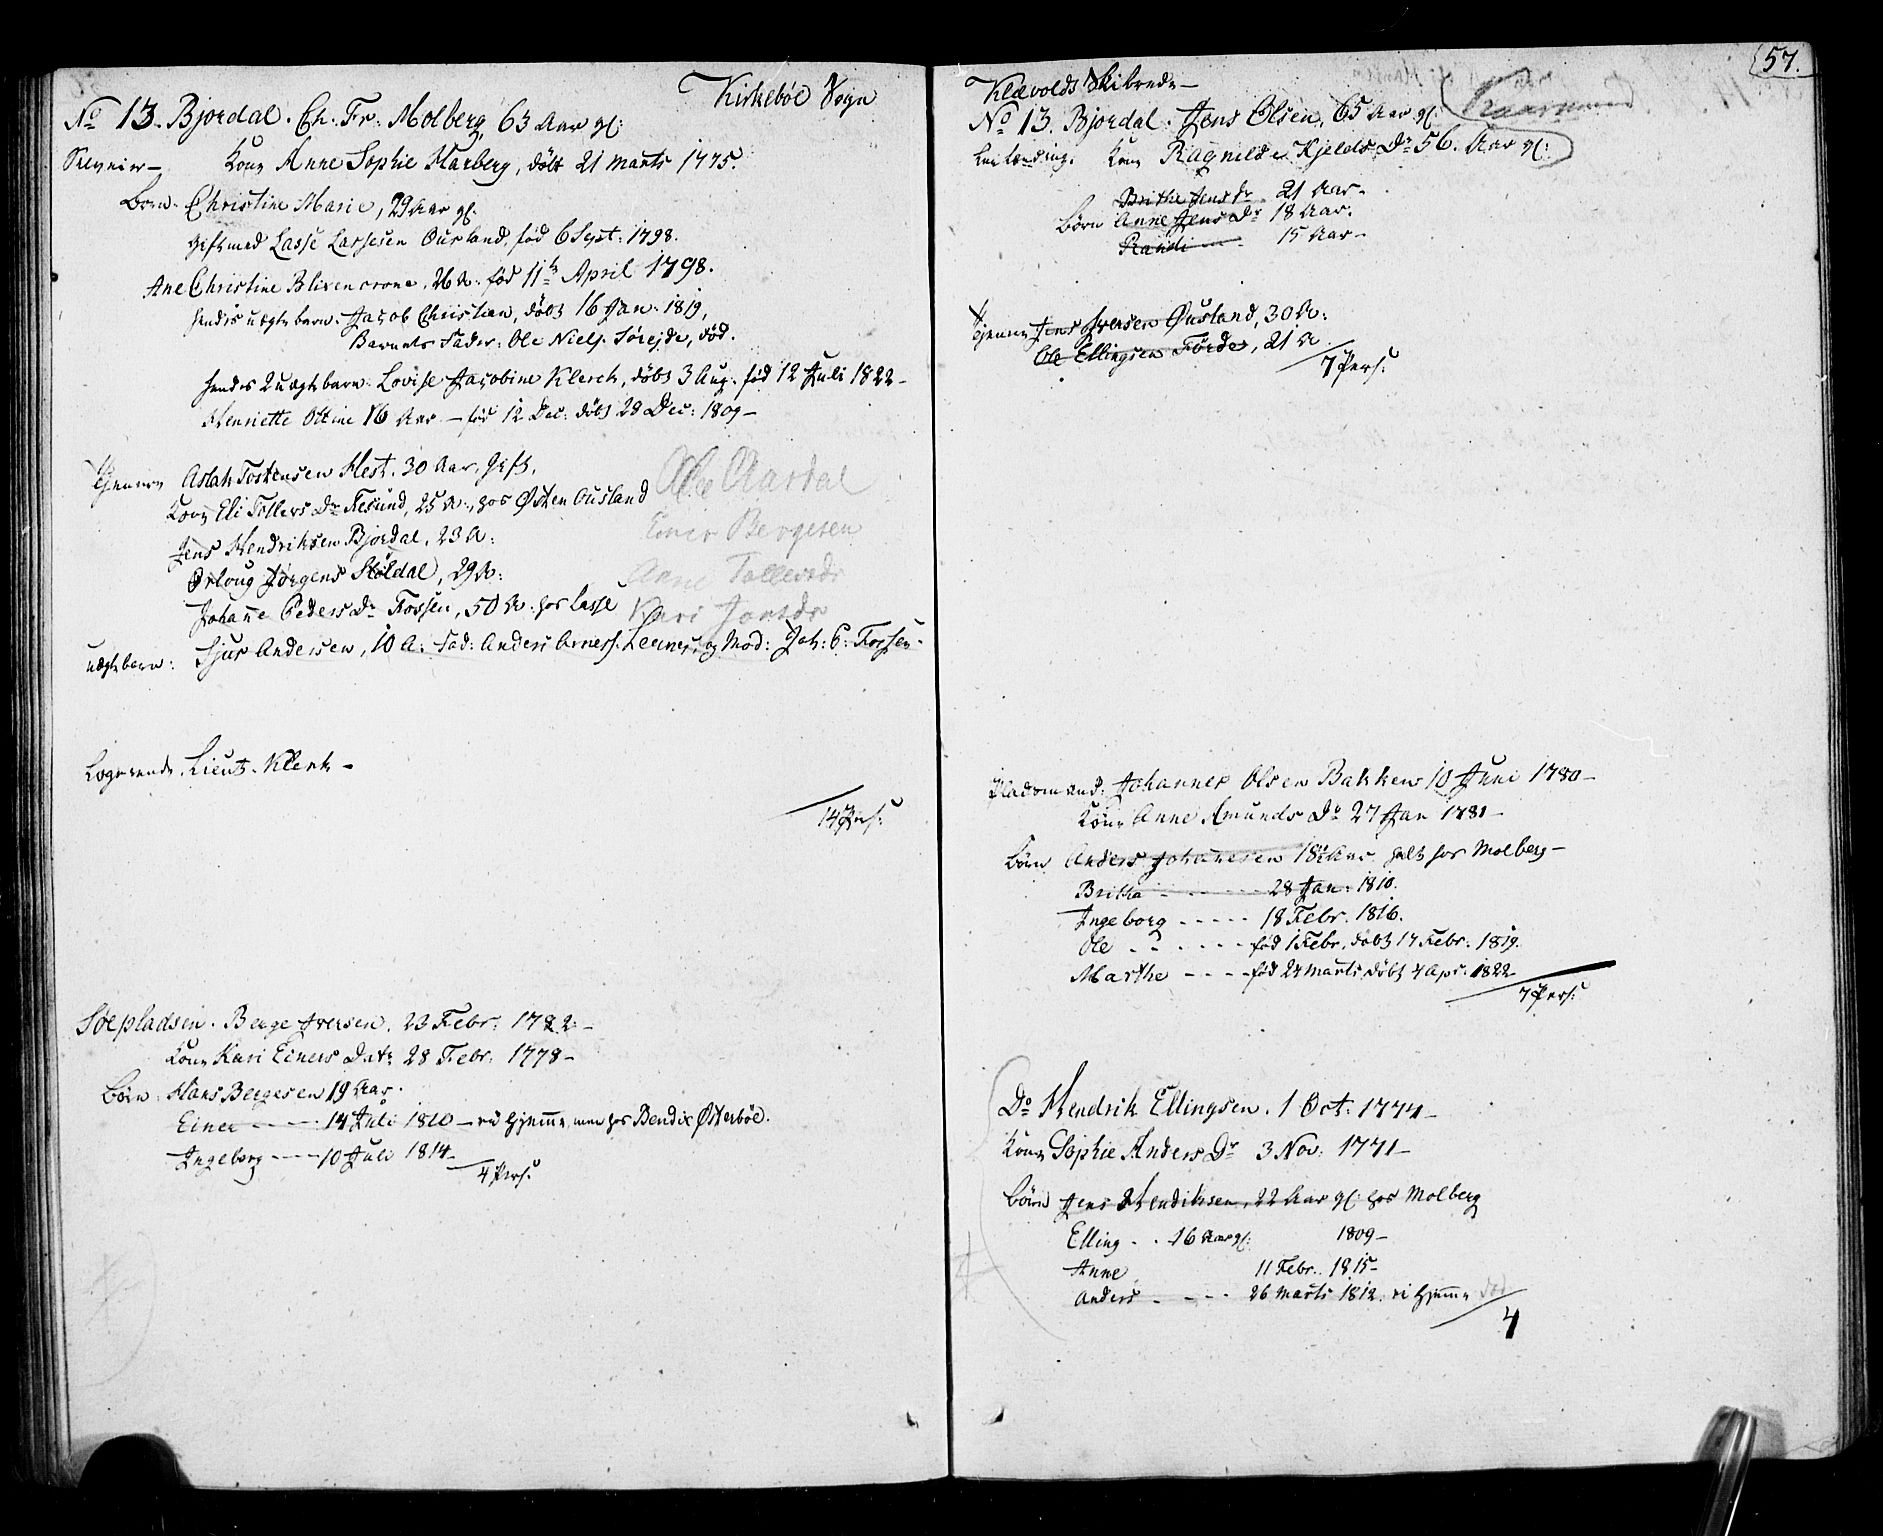 Kirkeböe Sogn
No 13. Bjordal. Ch. Fr. Molberg 63 Aar gl:
Kone Anne Sophie Harberg, döbt 21 Marts 1775.
Börn. Christine Marie, 29 Aar gl.
Gift med Lasse Lassesen Ousland, föd 6 Sept: 1798.
Ane Christine Blixencrone, 26 A. föd 11te April 1798.
hendes uægte barn. Jacob Christian, döbt 16 Jan: 1819,
Barnets Fader: Ole Niels. Söreide, död.
hendes 2 uægte barn: Lovise Jacobine Klerck, döbt 3 Aug. föd 12 Juli 1822-
Henriette Oltine 16 Aar - föd 12 Dec: döbt 28 Dec: 1809-
Tjenere Aslak Torstensen Hest. 30 Aar, Gift.
Kone Eli Tollevs Dr Fesund, 25 A., hos Østen Ousland
Jens Hendriksen Bjordal, 23 A:
Orloug Jörgens Stöldal, 29 A:
Johanne Peders Dr Fossen, 50 A. hos Lasse
uægte barn: Sjur Andersen, 10 A: Fad: Anders og Mod: Joh: P: Fossen.
Ole Aardal
Einer Bergesen
Anne Tollevsdr
Kari Jonsdr
Logerende. Lieut. Klerk -
14 Pers:
Söepladsen. Berge Iversen. 23 Febr: 1782-
Kone Kari Einers Datr 28 Febr: 1778-
Börn: Hans Bergesen 19 Aar.
Einer - - - 14 Juli 1810 - ei hjemme, men hos Bendix Østerböe.
Ingeborg - - - 10 Juli 1814-
4 Pers:
57.
Klævolds Skibrede -
No 13. Bjordal. Jens Olsen, 65 Aar gl:
Leilænding. Kone Ragnilde Kjelds Dr 56. Aar gl:
Brithe Jens dr 21 Aar-
Börn Anne Jens Dr 18 Aar.
Randi - - 15 Aar-
Tjenere Jens Iversen Øusland, 30 A:
Ole Ellingsen Förde, 21 A
7 Pers:
Pladsmænd: Johannes Olsen Bakken 10 Juni 1780-
Kone Anne Amunds Dr 27 Jan 1781-
Börn Anders Johannesen 18½ Aar halt hos Molberg-
Britha - - - - 28 Jan: 1810.
Ingeborg - - - - 18 Febr. 1816.
Ole - - - - föd 1 Febr, döbt 17 Febr: 1819.
Marthe - - - föd 24 Marts döbt 4 Apr: 1822
7 Pers:
Do Hendrik Ellingsen. 1 Oct: 1774-
Kone Sophie Anders Dr 3 Nov: 1771-
Börn Jens Hendriksen, 22 Aar gl: hos Molberg
Elling - - 16 Aar gl: 1809-
Anne 11 Febr. 1815-
Anders - - - - 26 Marts 1812. ei hjemme
4